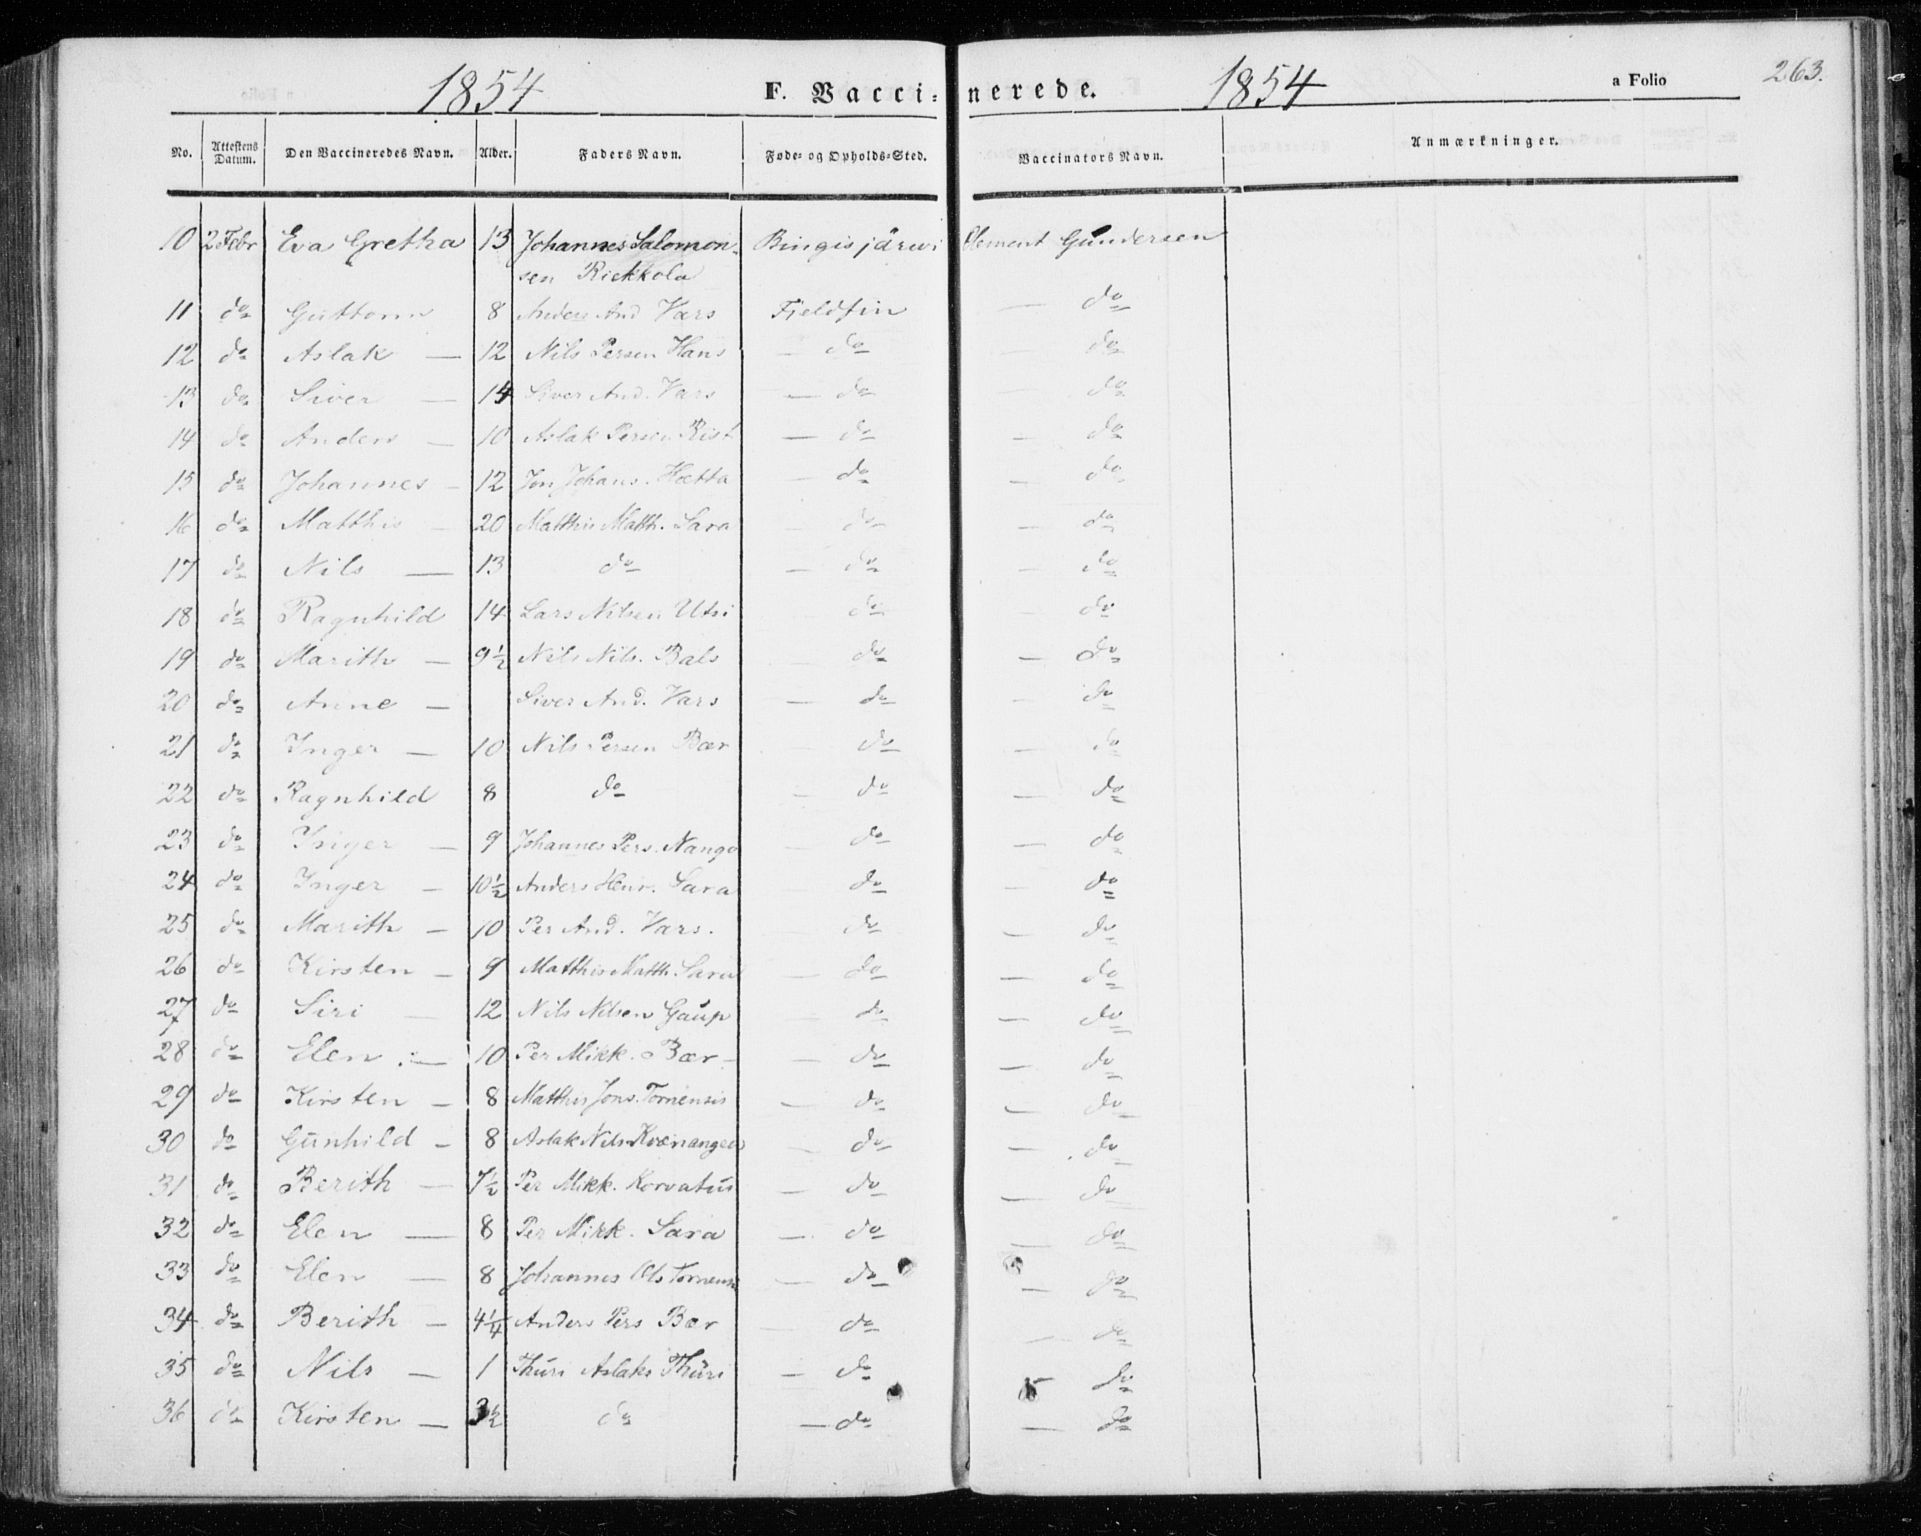 1854 F. Vaccinerede. 1854 a Folio 263.
No. Attestens Datum. Den Vaccineredes Navn. Alder. Faders Navn. Føde- og Opholds-Sted. Vaccinators Navn. Anmærkninger.
10 2 Febr Eva Gretha 13 Johannes Salomon- Bingisjärwi Clement Gundersen
sen Riekkola
11 do Guttorm 8 Anders And Vars Fieldfin — do
12 do Aslak — 12 Nils Persen Hans — do — do
13 do Siver — 14 Siver And. Vars — do — do
14 do Anders — 10 Aslak Persen Rist — do — do
15 do Johannes — 12 Jon Johans. Hætta — do — do
16 do Matthis — 20 Matthis Matth. Sara — do — do
17 do Nils — 13 do — do — do
18 do Ragnhild 14 Lars Nilsen Utsi do — do
19 do Marith — 9½ Nils Nils. Bals — do — do
20 do Anne — Siver And. Vars — do — do
21 do Inger — 10 Nils Persen Bær do — do
22 do Ragnhild 8 do — do — do
23 do Inger — 9 Johannes Pers. Nango — do — do
24 do Inger — 10½ Anders Henr. Sara do — do
25 do Marith — 10 Per And. Vars. — do — do
26 do Kirsten — 9 Matthis Matth. Sara — do — do
27 do Siri — 12 Nils Nilsen Gaup — do — do
28 do Elen — 10 Per Mikk. Bær — do — do
29 do Kirsten — 8 Matthis Jons. Tornensis — do — do
30 do Gunhild — 8 Aslak Nils Kvænangen — do — do
31 do Berith — 7½ Per Mikk. Korvatus — do — do
32 do Elen — 8 Per Mikk. Sara — do — do
33 do Elen — 8 Johannes Ols Tornensis — do — do
34 do Berith — 4¼ Anders Pers Bær — do — do
35 do Nils — 1 Thuri Aslaks Thuri — do do
36 do Kirsten — 3½ do — do — do